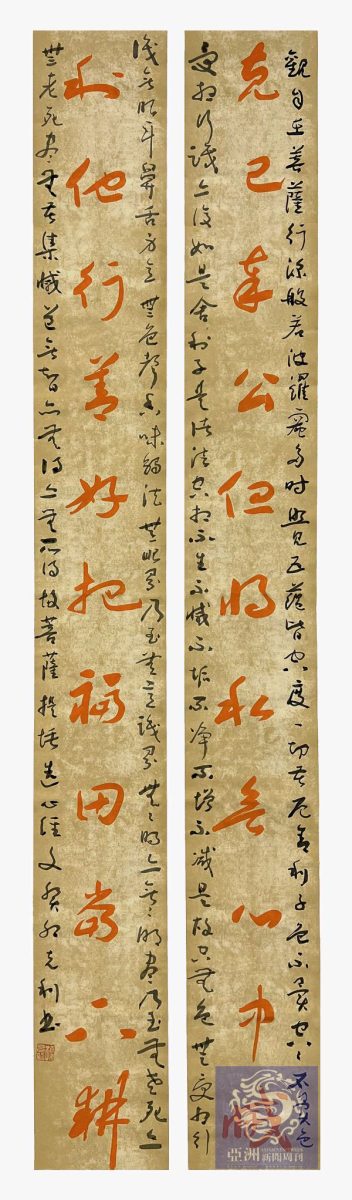 觀自在菩薩行深般若波羅蜜多時照見五蘊皆空度一切苦厄舍利子色不異空々不異色
克己奉公但將私心中
受想行識亦復如是舍利子是諸法空相不生不滅不垢不淨不增不減是故空無色無受想行
識無眼耳鼻舌身意無色聲香味觸法無眼界乃至無意識界無々明亦無々明盡乃至無老死亦
利他行善好把福田當下耕
無老死盡無苦集滅道無智亦無得以無所得故菩薩提埵選心經文癸卯克利書
亞洲新聞周刊